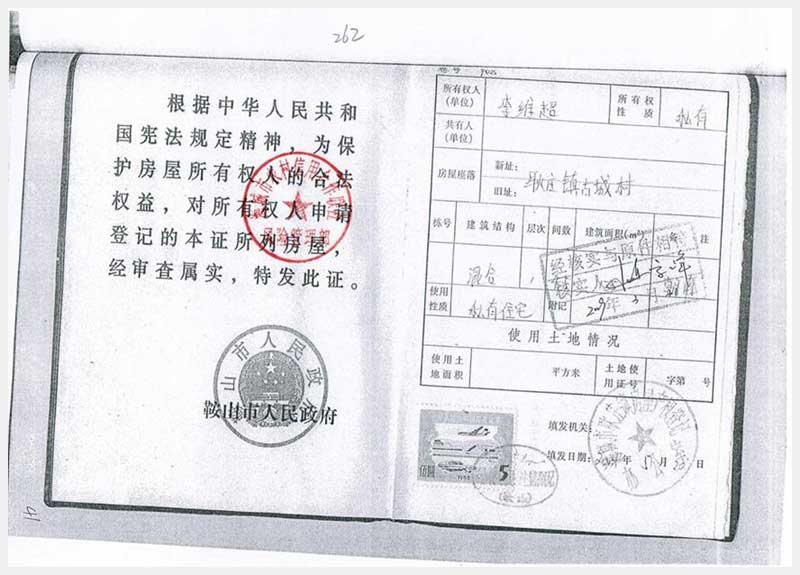 262
根据中华人民共和
国宪法规定精神，为保
护房屋所有权人的合法
权益，对所有权人申请
登记的本证所列房屋，
经审查属实，特发此证。
风险管理部
鞍山市人民政府
鞍山市人民政府
所有权人
(单位)
李维超
所有权
性质
私有
共有人
(单位)
房屋座落
新址：
旧址：
耿庄镇古城村
栋号
建筑结构
层次
间数
建筑面积(m²)
注
混合
经核实与原件相
核实人
2009年3月
使用
性质
私有住宅
附记
使用土地情况
使用土
地面积
平方米
土地使
用证号
字第 号
伍圆
5
1988
填发机关：
填发日期：
年 5 月 日
41